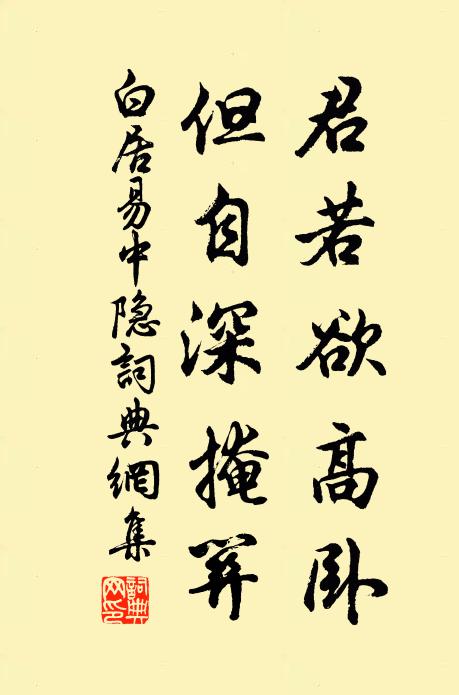 君若欲高卧
但自深掩關
白居易中隐詞典網集
詞典
网印